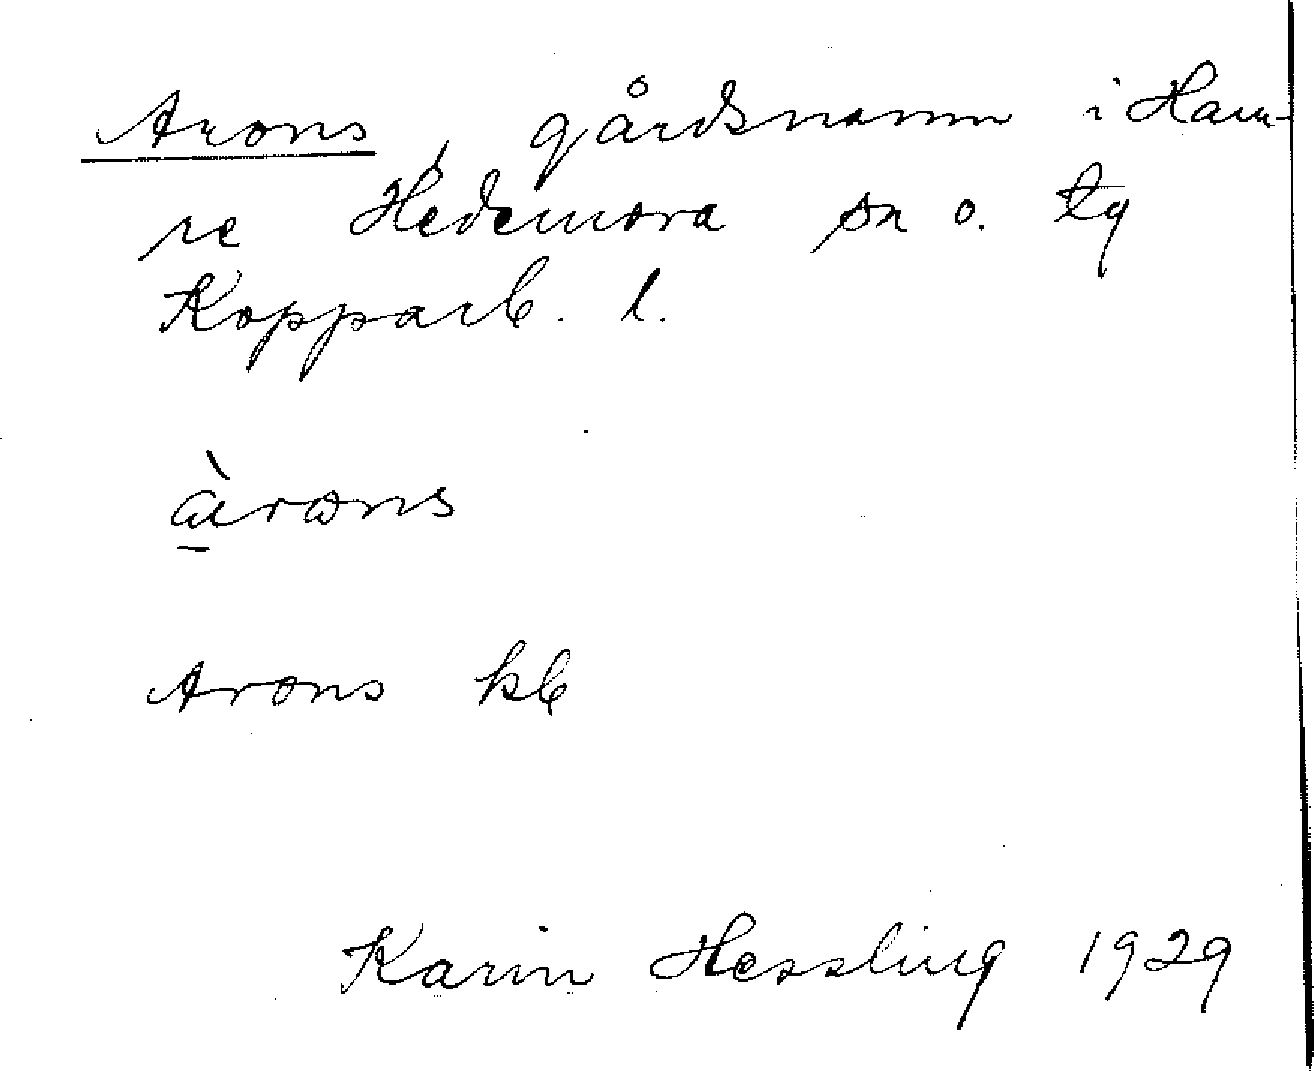 Arons, gårdsnamn i Ham-
re Hedemora sn o. tg
Kopparb. l.
àrons
Arons kb
Karin Hessling 1929